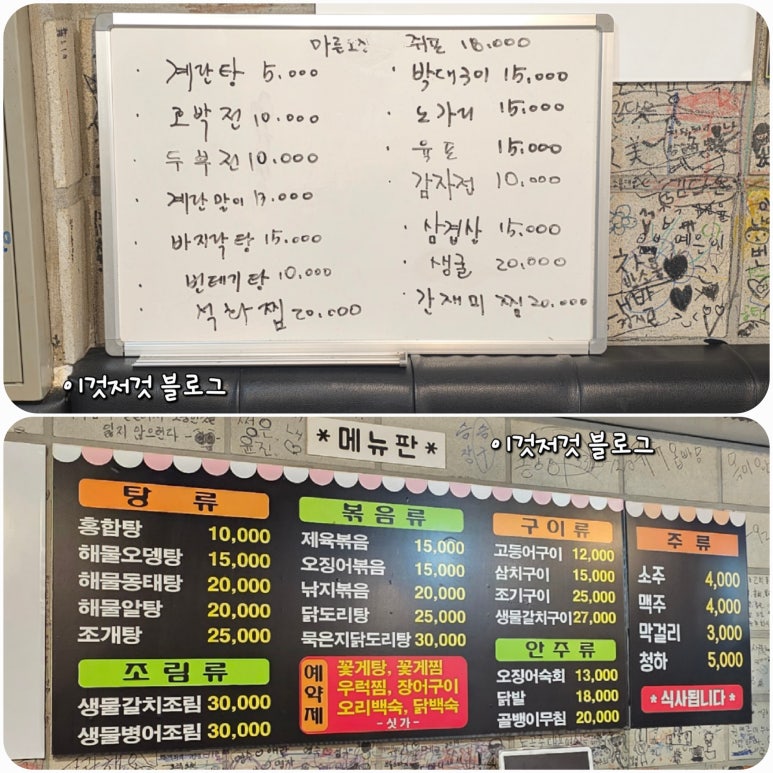 마른오징 쥐포 10.000
계란탕 5.000
호박전 10.000
두부전 10.000
계란말이 13.000
바지락탕 15.000
번데기탕 10.000
석화찜 20.000
박대구이 15.000
노가리 15.000
육포 15.000
감자전 10.000
삼겹살 15.000
생굴 20.000
간재미찜 20.000
이것저것 블로그
* 메뉴판 *
이것저것 블로그
탕류
홍합탕 10,000
해물오뎅탕 15,000
해물동태탕 20,000
해물알탕 20,000
조개탕 25,000
조림류
생물갈치조림 30,000
생물병어조림 30,000
볶음류
제육볶음 15,000
오징어볶음 15,000
낚지볶음 20,000
닭도리탕 25,000
묵은지닭도리탕 30,000
예약제
꽃게탕, 꽃게찜
우럭찜, 장어구이
오리백숙, 닭백숙
- 싯가 -
구이류
고등어구이 12,000
삼치구이 15,000
조기구이 25,000
생물갈치구이 27,000
안주류
오징어숙회 13,000
닭발 18,000
골뱅이무침 20,000
주류
소주 4,000
맥주 4,000
막걸리 3,000
청하 5,000
* 식사됩니다 *